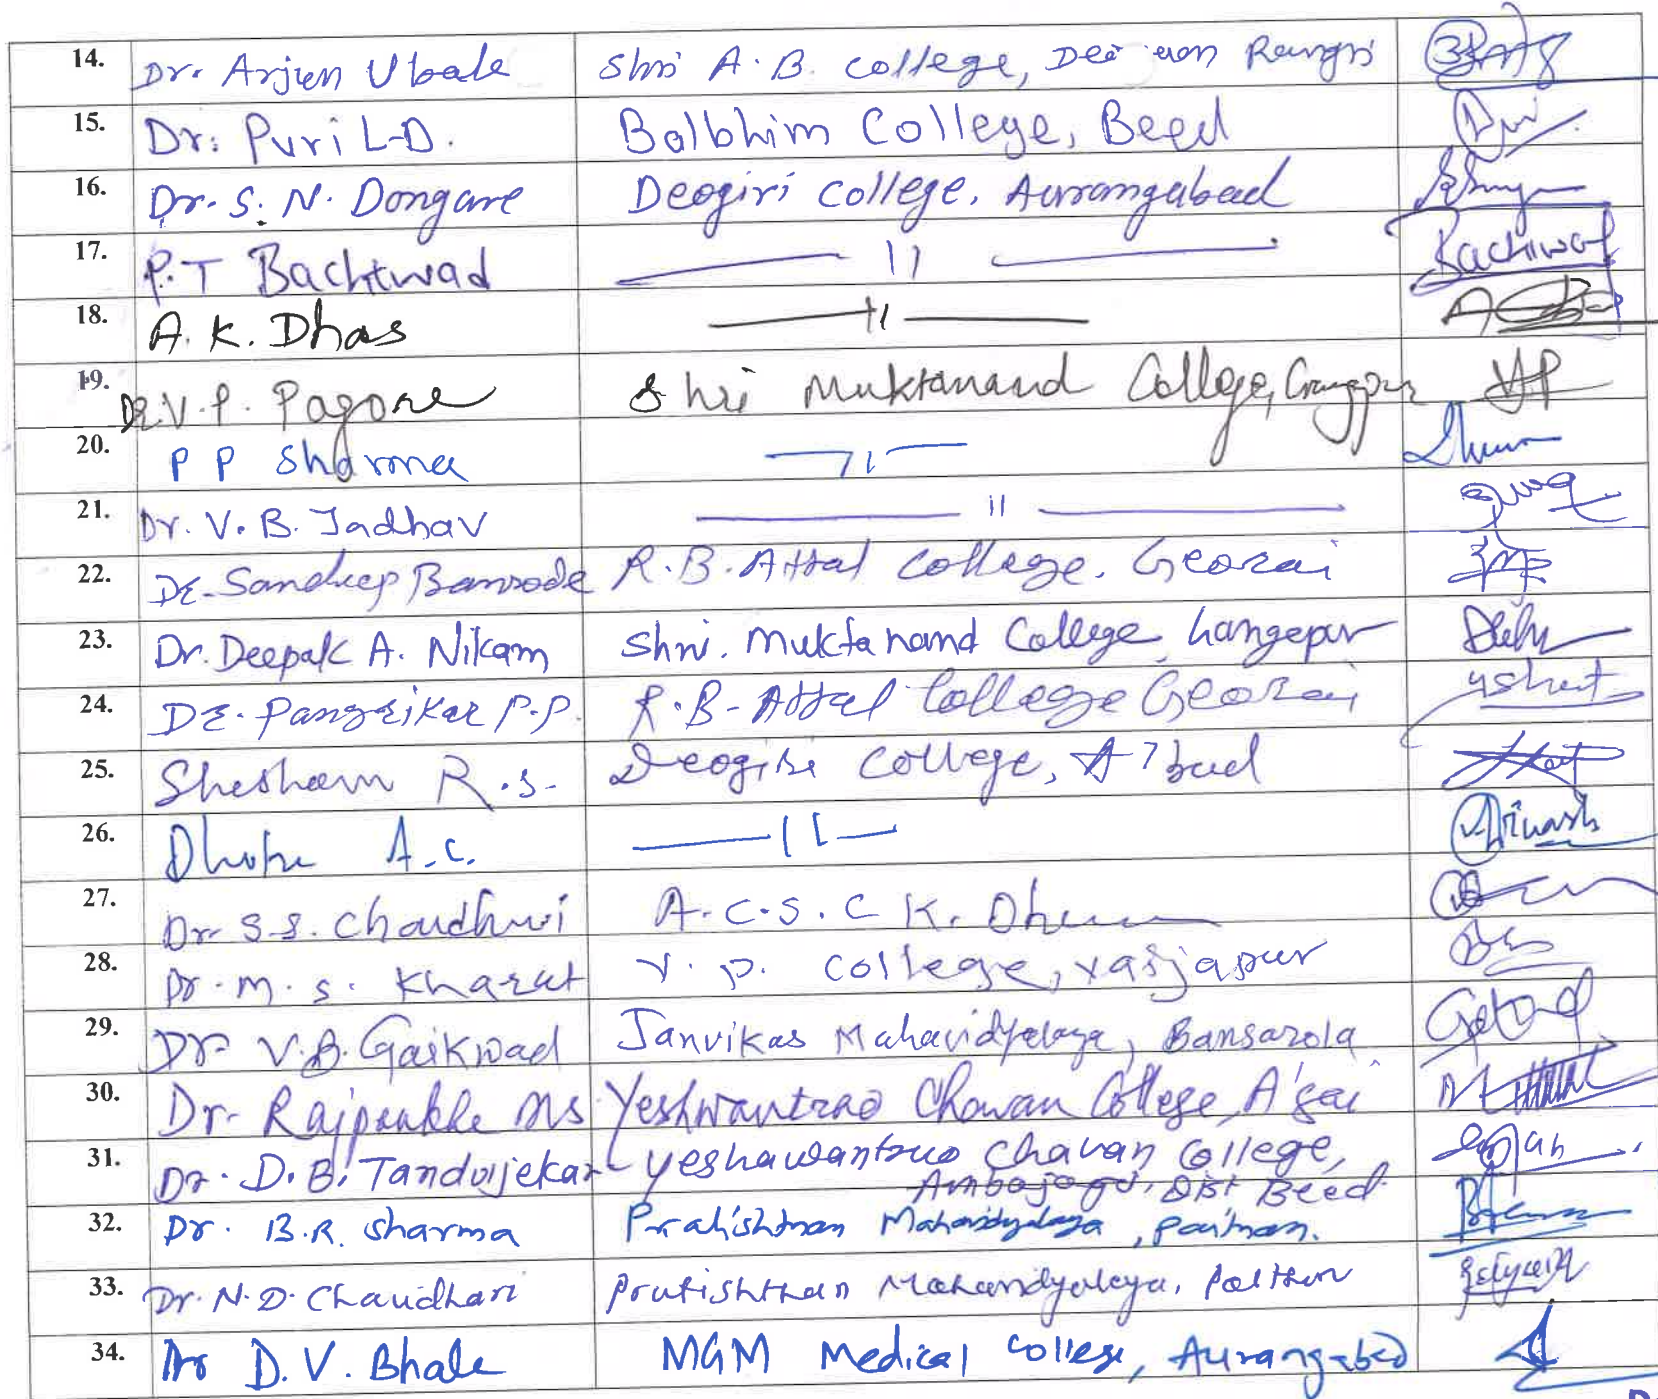 14. Dr. Arjun Ubale Shri A.B. College, Deo
15. Dr. Puri L.D. Balbhim College, Beed
16. Dr. S. N. Dongare Deogiri College, Aurangabad
17. P.T Bachewad —— 11 ——
18. A. K. Dhas —— 11 ——
19. Dr. V. P. Pagore Shri Muktanand College, Gangpur
20. P P Sharma —— 11 ——
21. Dr. V. B. Jadhav —— 11 ——
22. Dr. Sandeep Bansode R. B. Attal College. Georai
23. Dr. Deepak A. Nikam Shri. Muktanand College, Gangapur
24. Dr. Pangrikar P.P. R. B. Attal College Georai
25. Shesham R.S. Deogiri College, A'bad
26. A.C. —— 11 ——
27. Dr. S.S. Chaudhari A.C.S.C K.
28. Dr. M. S. Kharat V. P. College, Vaijapur
29. Dr V. B. Gaikwad Janvikas Mahavidyalaya, Bansarola
30. Dr. Rajpankhe MS Yeshwantrao Chavan College, A'gai
31. Dr. D. B. Tandujekar Yeshawantrao Chavan College,
Ambajogai, Dist Beed
32. Dr. B.R. Sharma Pratishthan Mahavidyalaya, Paithan.
33. Dr. N. D. Chaudhari Pratishthan Mahavidyalaya, Paithan
34. Dr D. V. Bhale MGM Medical College, Aurangabad